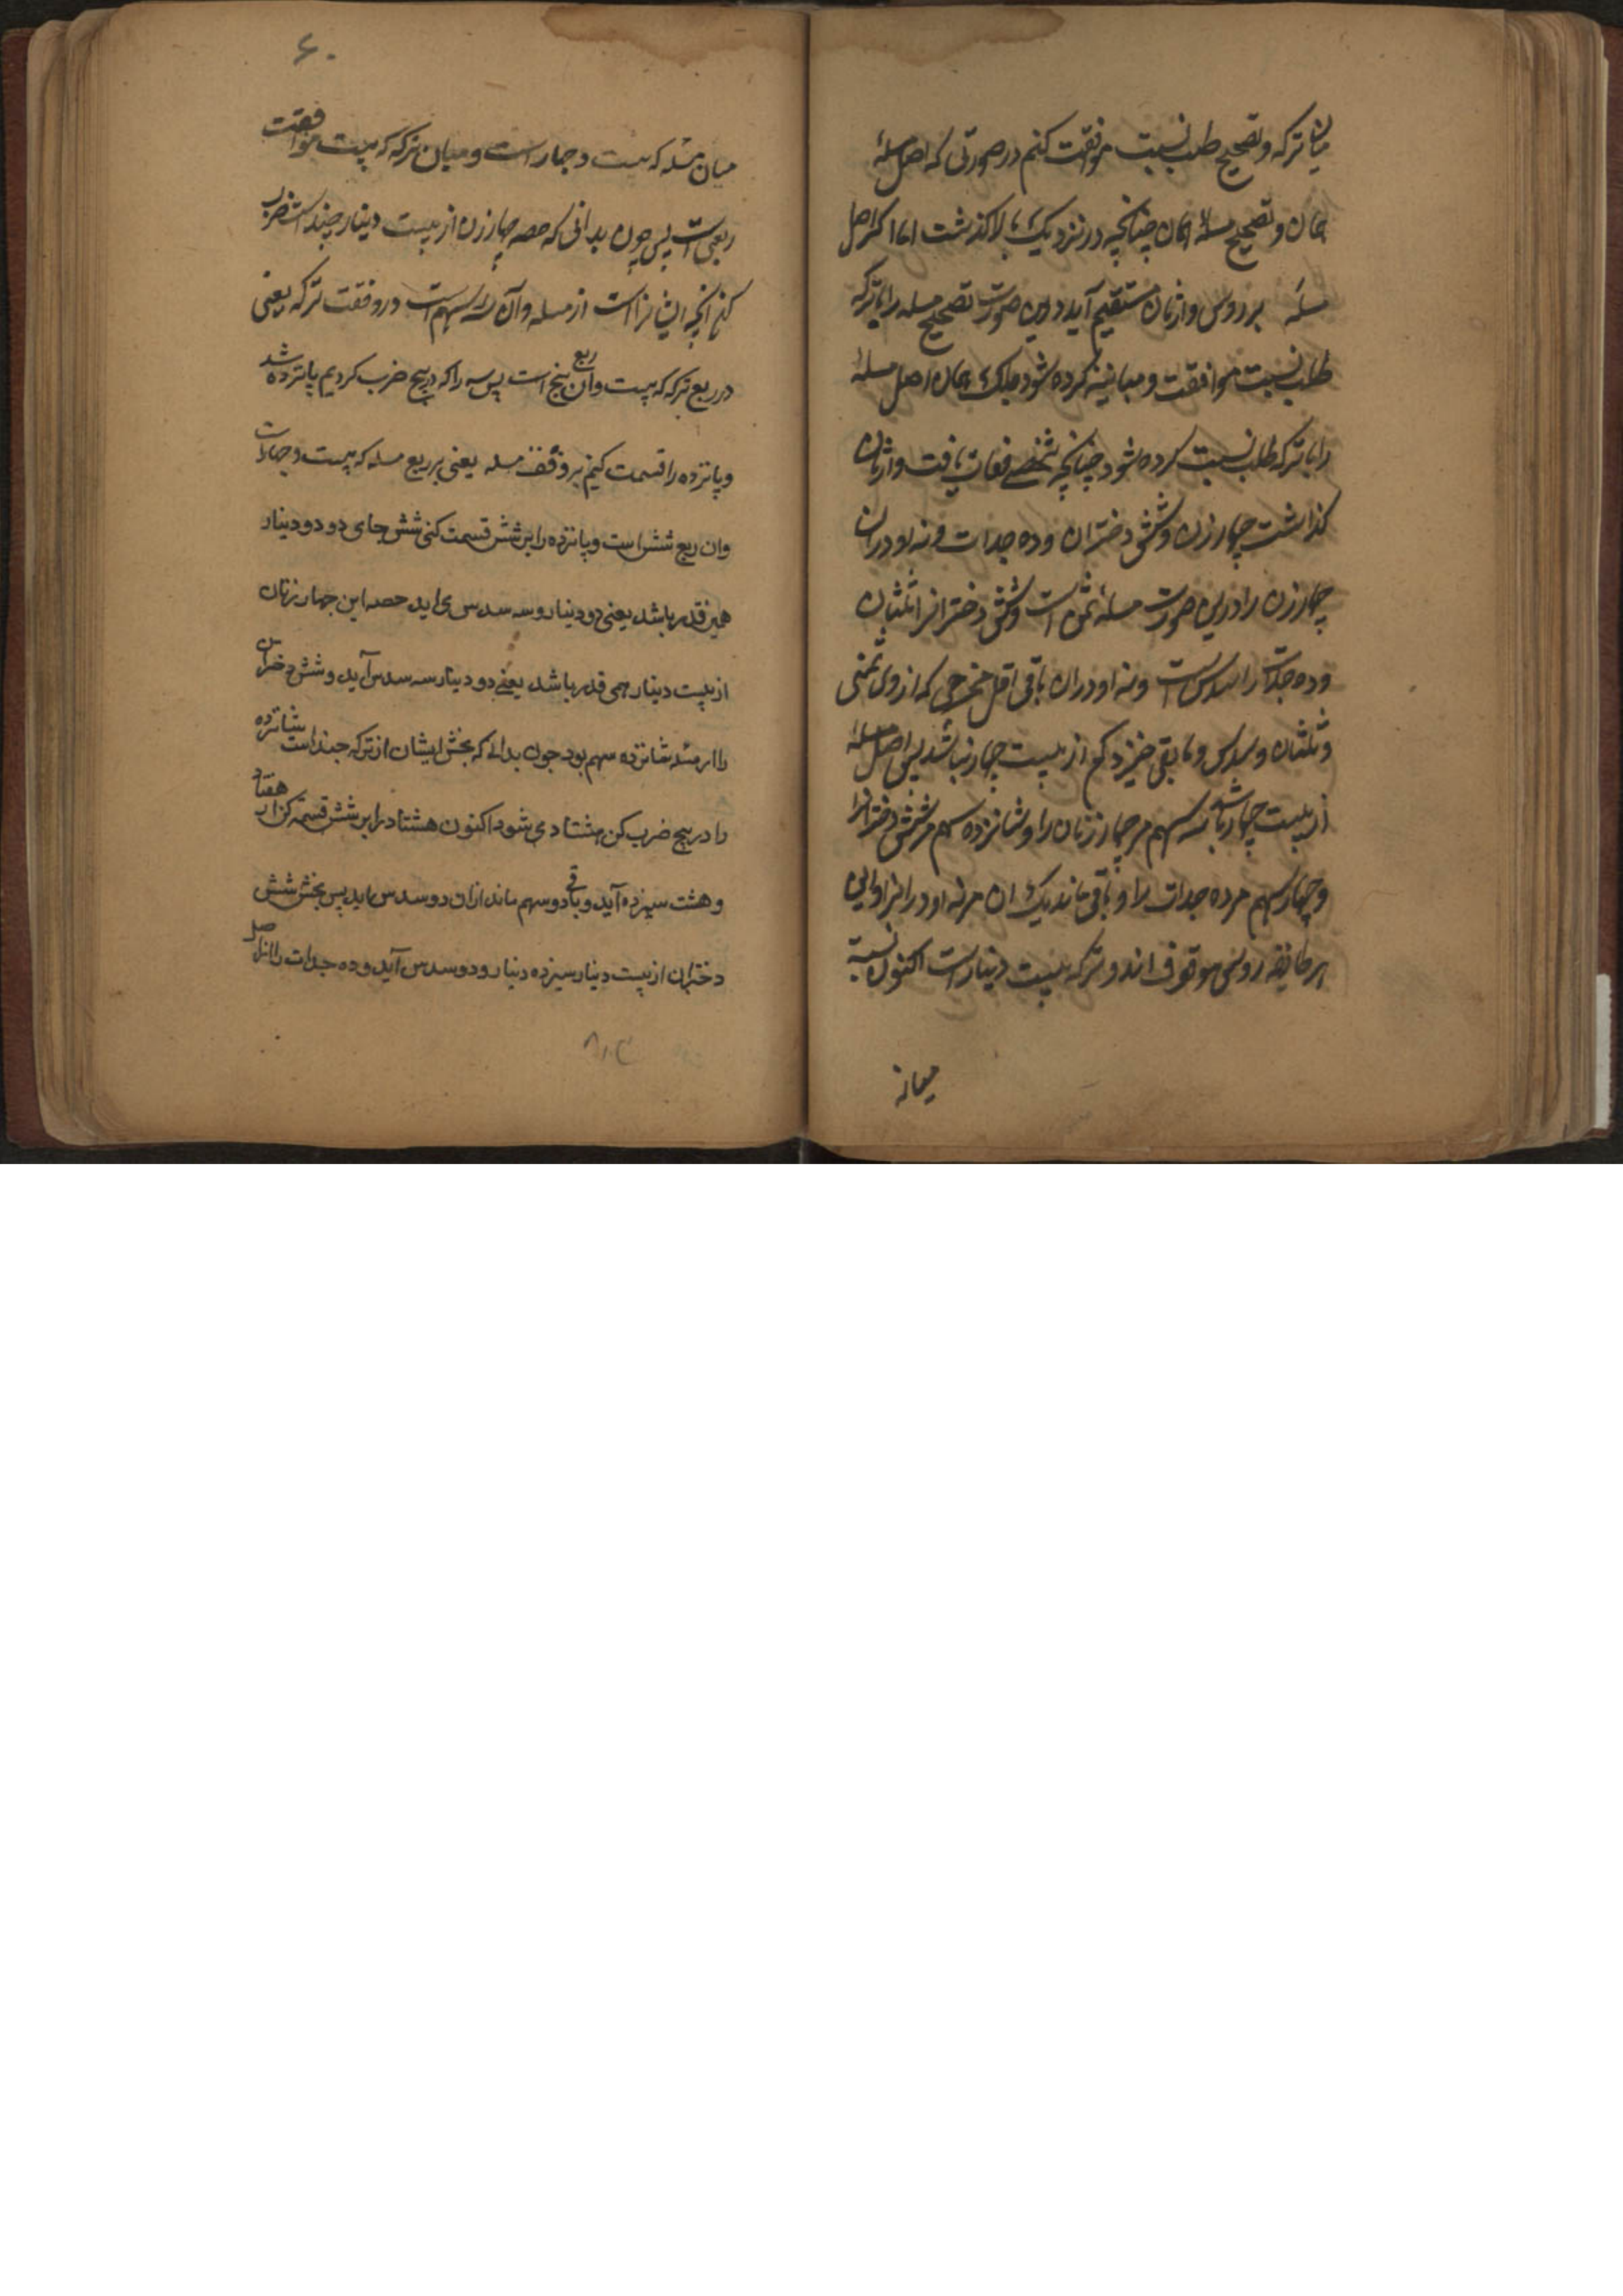 میان ترکه و تصحیح طلب نسبت موافقت کنم در صورتی که اصل مسلهٔ
همان و تصحیح مسلهٔ همان چنانچه در نزدیک بالا گذشت اما اگر اصل
مسلهٔ بر روس وارثان مستقیم آید درین صورت تصحیح مسله را با ترکه
طلب نسبت موافقت و مباینه کرده شود بلک همان اصل مسلهٔ
را با ترکه طلب نسبت کرده شود چنانچه شخصے فعات یافت و وارثان
گذاشت چهار زن و شش دختران و ده جدات و نه اودران
چهار زن را درین صورت مسلهٔ ثمن است و شش دخترانرا ثلثان
و ده جدات را سدس است و نه اودران باقی اقل مخرجی که ازوی ثمنی
و ثلثان و سدس و مابقی خیزد کم از بیست چهار نباشد پس اصل مسلهٔ
از بیست چهار باشد سه سهم مر چهار زنان را و شانزده سهم مر شش دخترانرا
و چهار سهم مر ده جدات را و باقی ماند یک ان مر نه اودرانرا و این
هر طایفه روسی موقوف اند و ترکه بیست دینار است اکنون نسبة
میانه
۶۰
میان مسله که بیست و چهار است و میان ترکه که بیست موافقت
ربعی است پس چون بدانی که حصه چهار زن از بیست دینار چند است ضرب
کن آنچه ایشانراست از مسله و آن سه سهم است در وفقت ترکه یعنی
در ربع ترکه که بیست و آن ربع پنج است پس سه را که در پنج ضرب کردیم پانزده شد
و پانزده را قسمت کنیم بر وفق مسله یعنی بر ربع مسله که بیست و چهار است
وان ربع شش است و پانزده را بر شش قسمت کنی شش جای دو دو دینار
همین قدر باشد یعنی دو دینار و سه سدس می اید حصه این چهار زنان
از بیست دینار همی قدر باشد یعنے دو دینار سه سدس آید و شش دختران
را از مسله شانزده سهم بود چون بدانی که بخش ایشان از ترکه چند است شانزده
را در پنج ضرب کن هشتاد می شود اکنون هشتاد را بر شش قسمت کن از هفتاد
و هشت سیزده آید و باقی دو سهم ماند ازان دو سدس باید پس بخش شش
دختران از بیست دینار سیزده دینار و دو سدس آید و ده جدات را از اصل